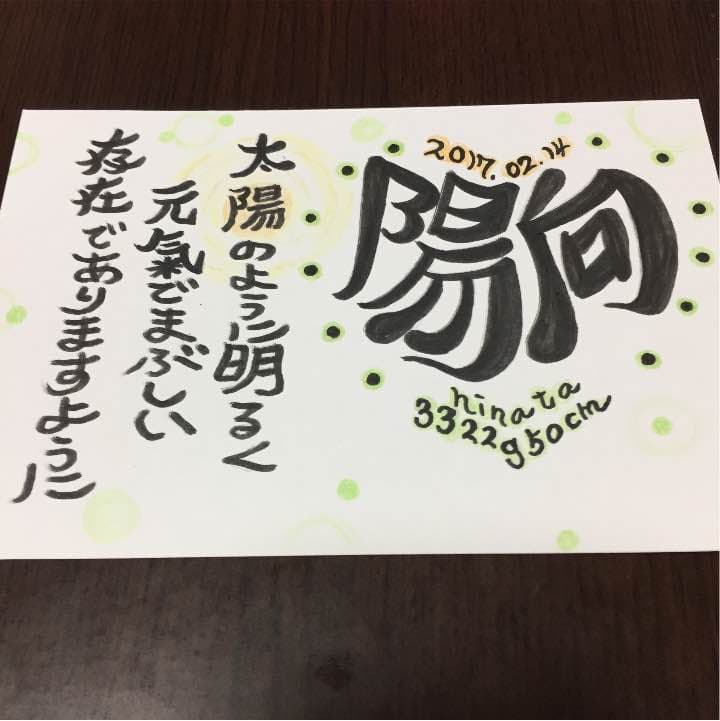 2017.02.14
陽向
hinata
3322g50cm
太陽のように明るく
元氣でまぶしい
存在でありますように